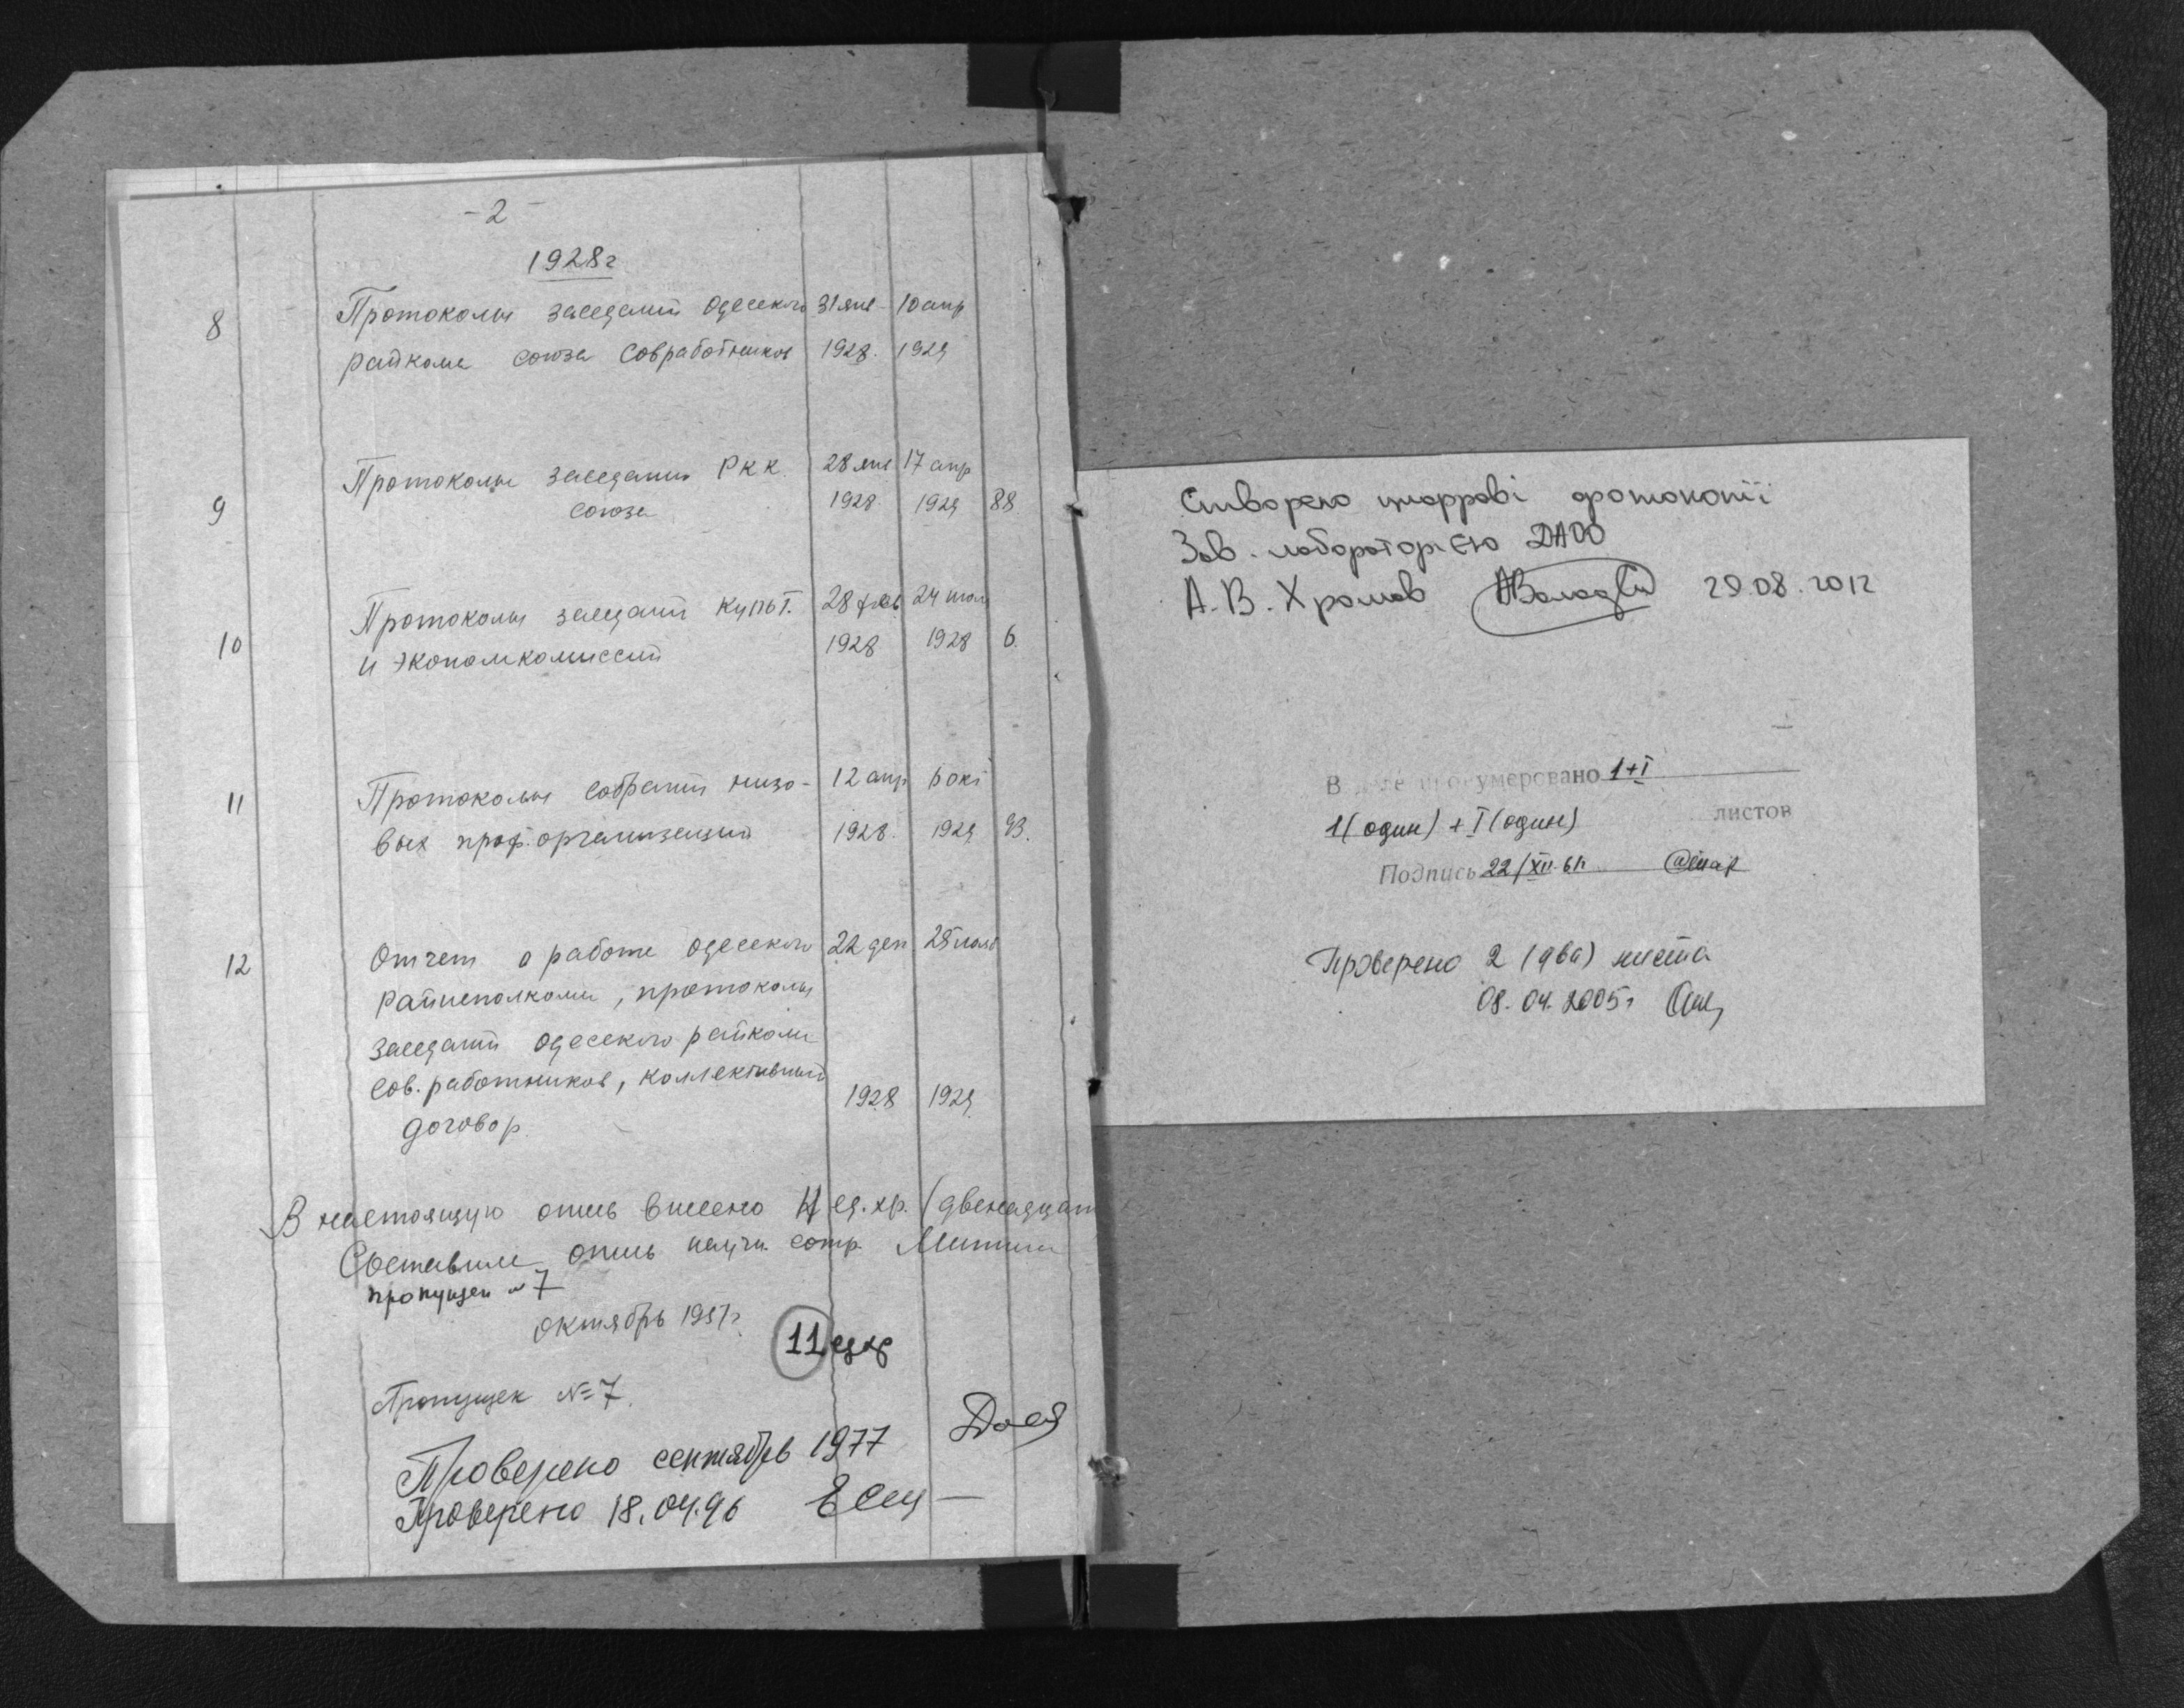 - 2 -
1928г
8 Протоколы заседаний Одесского 31 янв - 10 апр
райкома союза Совработников 1928. 1929
9 Протоколы заседания РКК 28 янв 17 апр
союза 1928 1929 88
10 Протоколы заседаний культ. 28 фев 24 июля
и экономкомиссий 1928 1928 6
11 Протоколы собраний низо- 12 апр окт
вых проф.организаций 1928. 1929 93.
12 Отчет о работе Одесского 22 дек 25 нояб
райисполкома, протоколы
заседаний Одесского райкома
сов. работников, коллективный 1928 1929
договор
В настоящую опись внесено ед. хр. (двенадцат
Составила опись научн. сотр.
пропущен № 7
октябрь 1957г.
11 ед хр
Пропущен № 7.
Проверено сентябрь 1977
Проверено 18.04.96
Створено цифрові фотокопії
Зав. лабораторією ДАОО
А.В. Хромов 29.08.2012
В деле пронумеровано 1+I
1 (один) + I (один) листов
Подпись 22/XII
Проверено 2 (два) листа
08.04.2005г